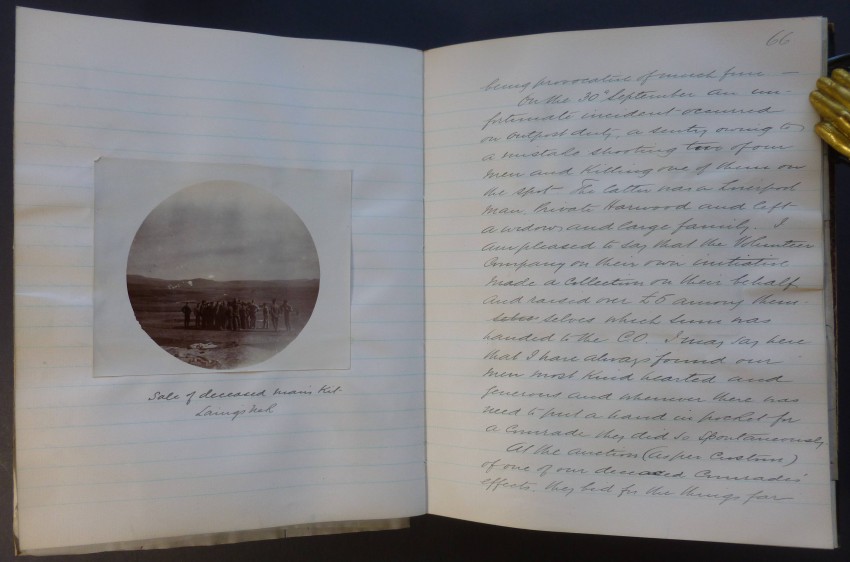 Sale of deceased man's Kit
Laings Nek
66
being provocative of much fun —
On the 30th September an un-
fortunate incident occurred
on outpost duty, a sentry owing to
a mistake shooting two of our
men and killing one of them on
the spot. The latter was a Liverpool
man, Private Harwood and left
a widow and large family. I
am pleased to say that the Volunteer
Company on their own initiative
made a collection on their behalf
and raised over £6 among them-
selves which sum was
handed to the C.O. I may say here
that I have always found our
men most kind hearted and
generous and whenever there was
need to put a hand in pocket for
a Comrade they did so spontaneously
At the auction (as per Custom)
of one of our deceased Comrades'
effects, they bid for the things far